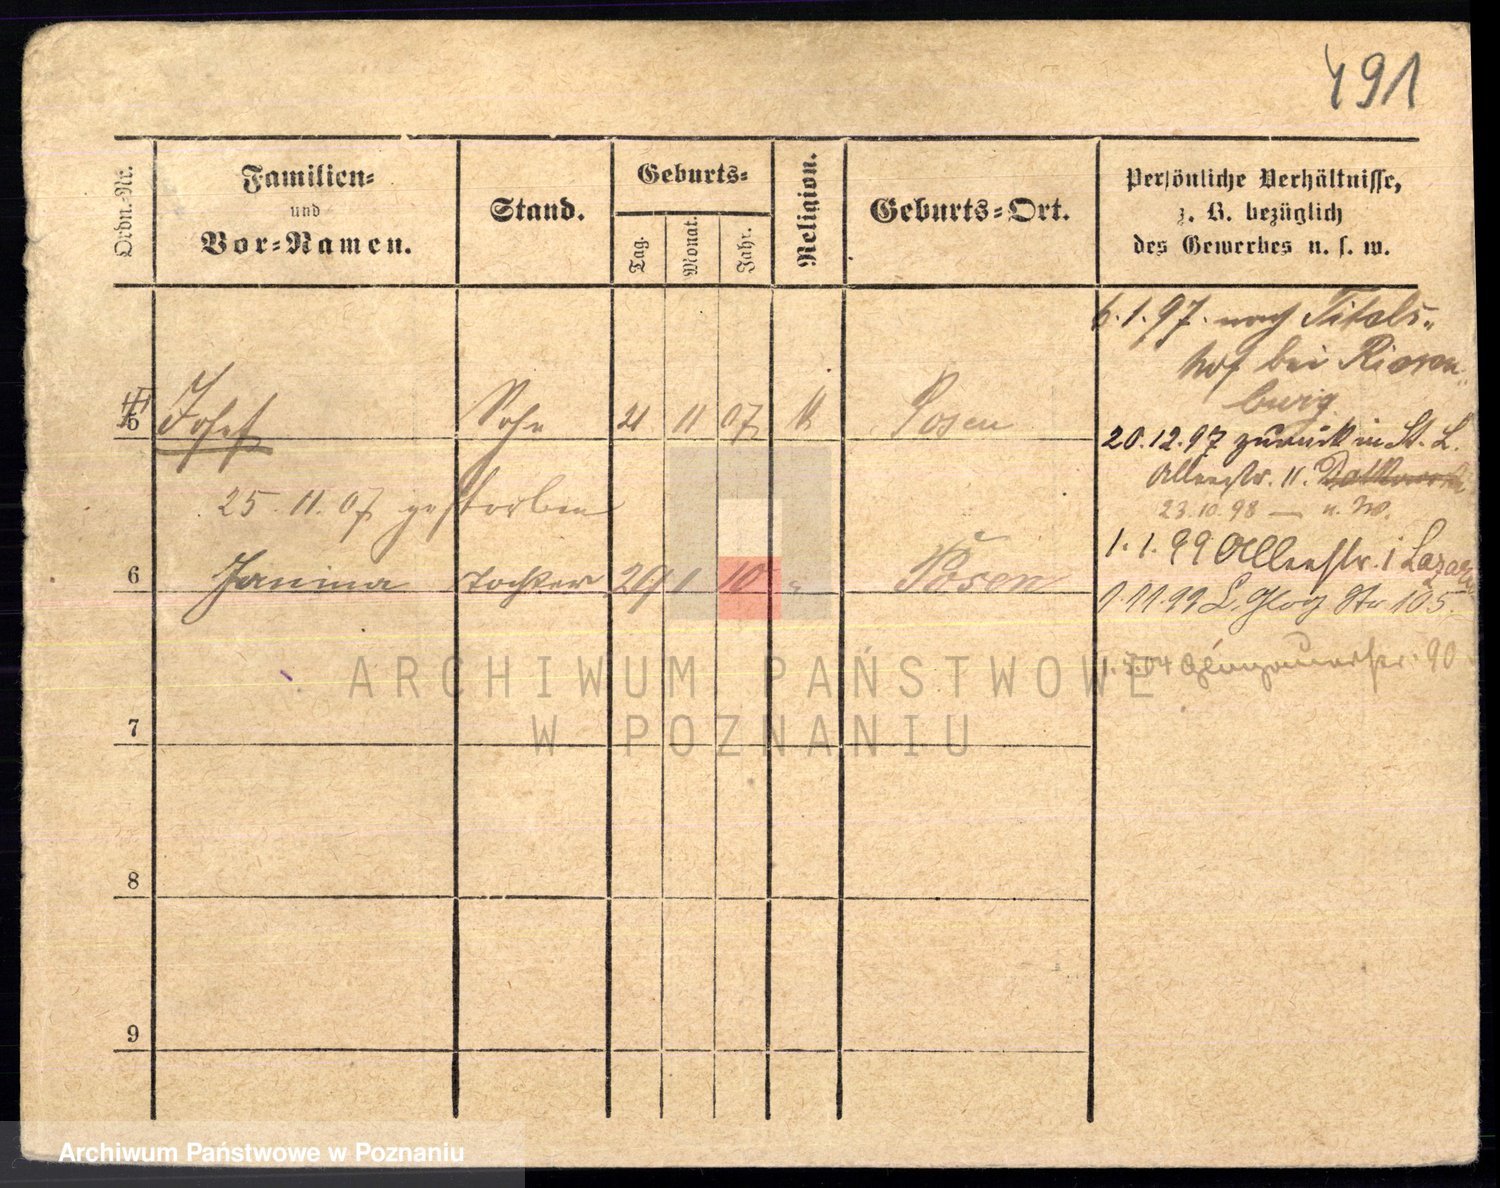 491
Ordn.-Nr.
Familien-
und
Vor-Namen.
Stand.
Geburts-
Tag.
Monat.
Jahr.
Religion.
Geburts-Ort.
Persönliche Verhältnisse,
z. B. bezüglich
des Gewerbes u. s. w.
6.1.97. nach Titels-
hof bei Riesen-
burg.
5 Josef Sohn 21 11 07 k Posen
20.12.97 zurück in St. L.
Alleestr. 11.
25.11.07 gestorben
23.10.98 — u. W.
1.1.99 Alleestr. i Lazarus
6 Janina Tochter 29 1 10 " Posen
1.11.99 L. Glog Str 105.
90
7
8
9
ARCHIWUM PAŃSTWOWE
W POZNANIU
Archiwum Państwowe w Poznaniu